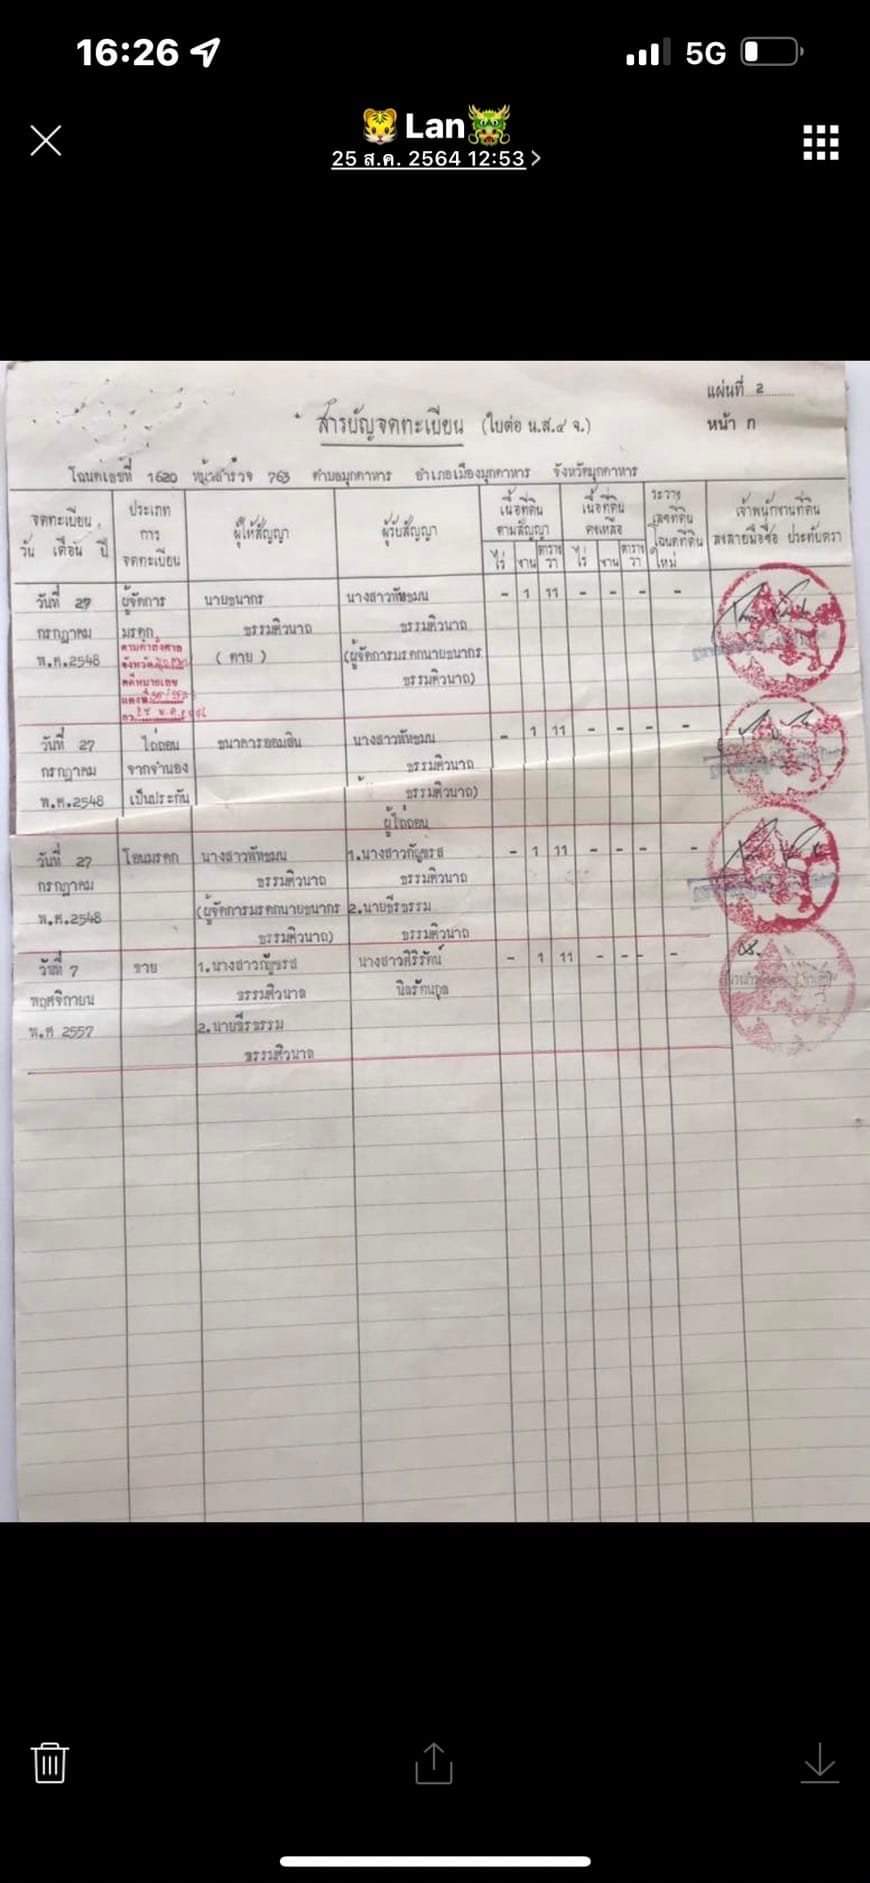 16:26
5G
🐯Lan🐲
25 ส.ค. 2564 12:53 >
แผ่นที่ 2
สารบัญจดทะเบียน (ใบต่อ น.ส.๔ จ.)
หน้า ก
โฉนดเลขที่ 1620 หน้าสำรวจ 763 ตำบลมุกดาหาร อำเภอเมืองมุกดาหาร จังหวัดมุกดาหาร
จดทะเบียน วัน เดือน ปี
ประเภทการจดทะเบียน
ผู้ให้สัญญา
ผู้รับสัญญา
เนื้อที่ดินตามสัญญา
เนื้อที่ดินคงเหลือ
ระวางเลขที่ดินโฉนดที่ดินใหม่
เจ้าพนักงานที่ดินลงลายมือชื่อ ประทับตรา
ไร่ งาน ตารางวา ไร่ งาน ตารางวา
วันที่ 27 ผู้จัดการ นายธนากร นางสาวทัฬชมน - 1 11 - - - -
กรกฎาคม มรดก ธรรมศิวนาถ ธรรมศิวนาถ
ตามคำสั่งศาล
พ.ศ.2548 ( ตาย ) (ผู้จัดการมรดกนายธนากร
จังหวัด
คดีหมายเลข ธรรมศิวนาถ)
แดงที่
วันที่ 27 ไถ่ถอน ธนาคารออมสิน นางสาวทัฬชมน - 1 11 - - - -
กรกฎาคม จากจำนอง ธรรมศิวนาถ
พ.ศ.2548 เป็นประกัน ธรรมศิวนาถ)
ผู้ไถ่ถอน
วันที่ 27 โอนมรดก นางสาวทัฬชมน 1.นางสาวกัญชรส - 1 11 - - - -
กรกฎาคม ธรรมศิวนาถ ธรรมศิวนาถ
พ.ศ.2548 (ผู้จัดการมรดกนายธนากร 2.นายธีรธรรม
ธรรมศิวนาถ) ธรรมศิวนาถ
วันที่ 7 ขาย 1.นางสาวกัญชรส นางสาวศิริรัตน์ - 1 11 - - - -
พฤศจิกายน ธรรมศิวนาถ นิลรัตนกุล
พ.ศ 2557 2.นายธีรธรรม
ธรรมศิวนาถ